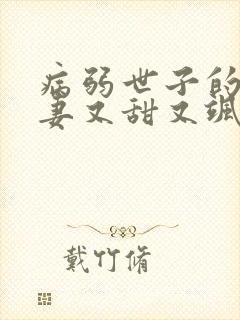 病弱世子的
妻又甜又飒
戴竹脩